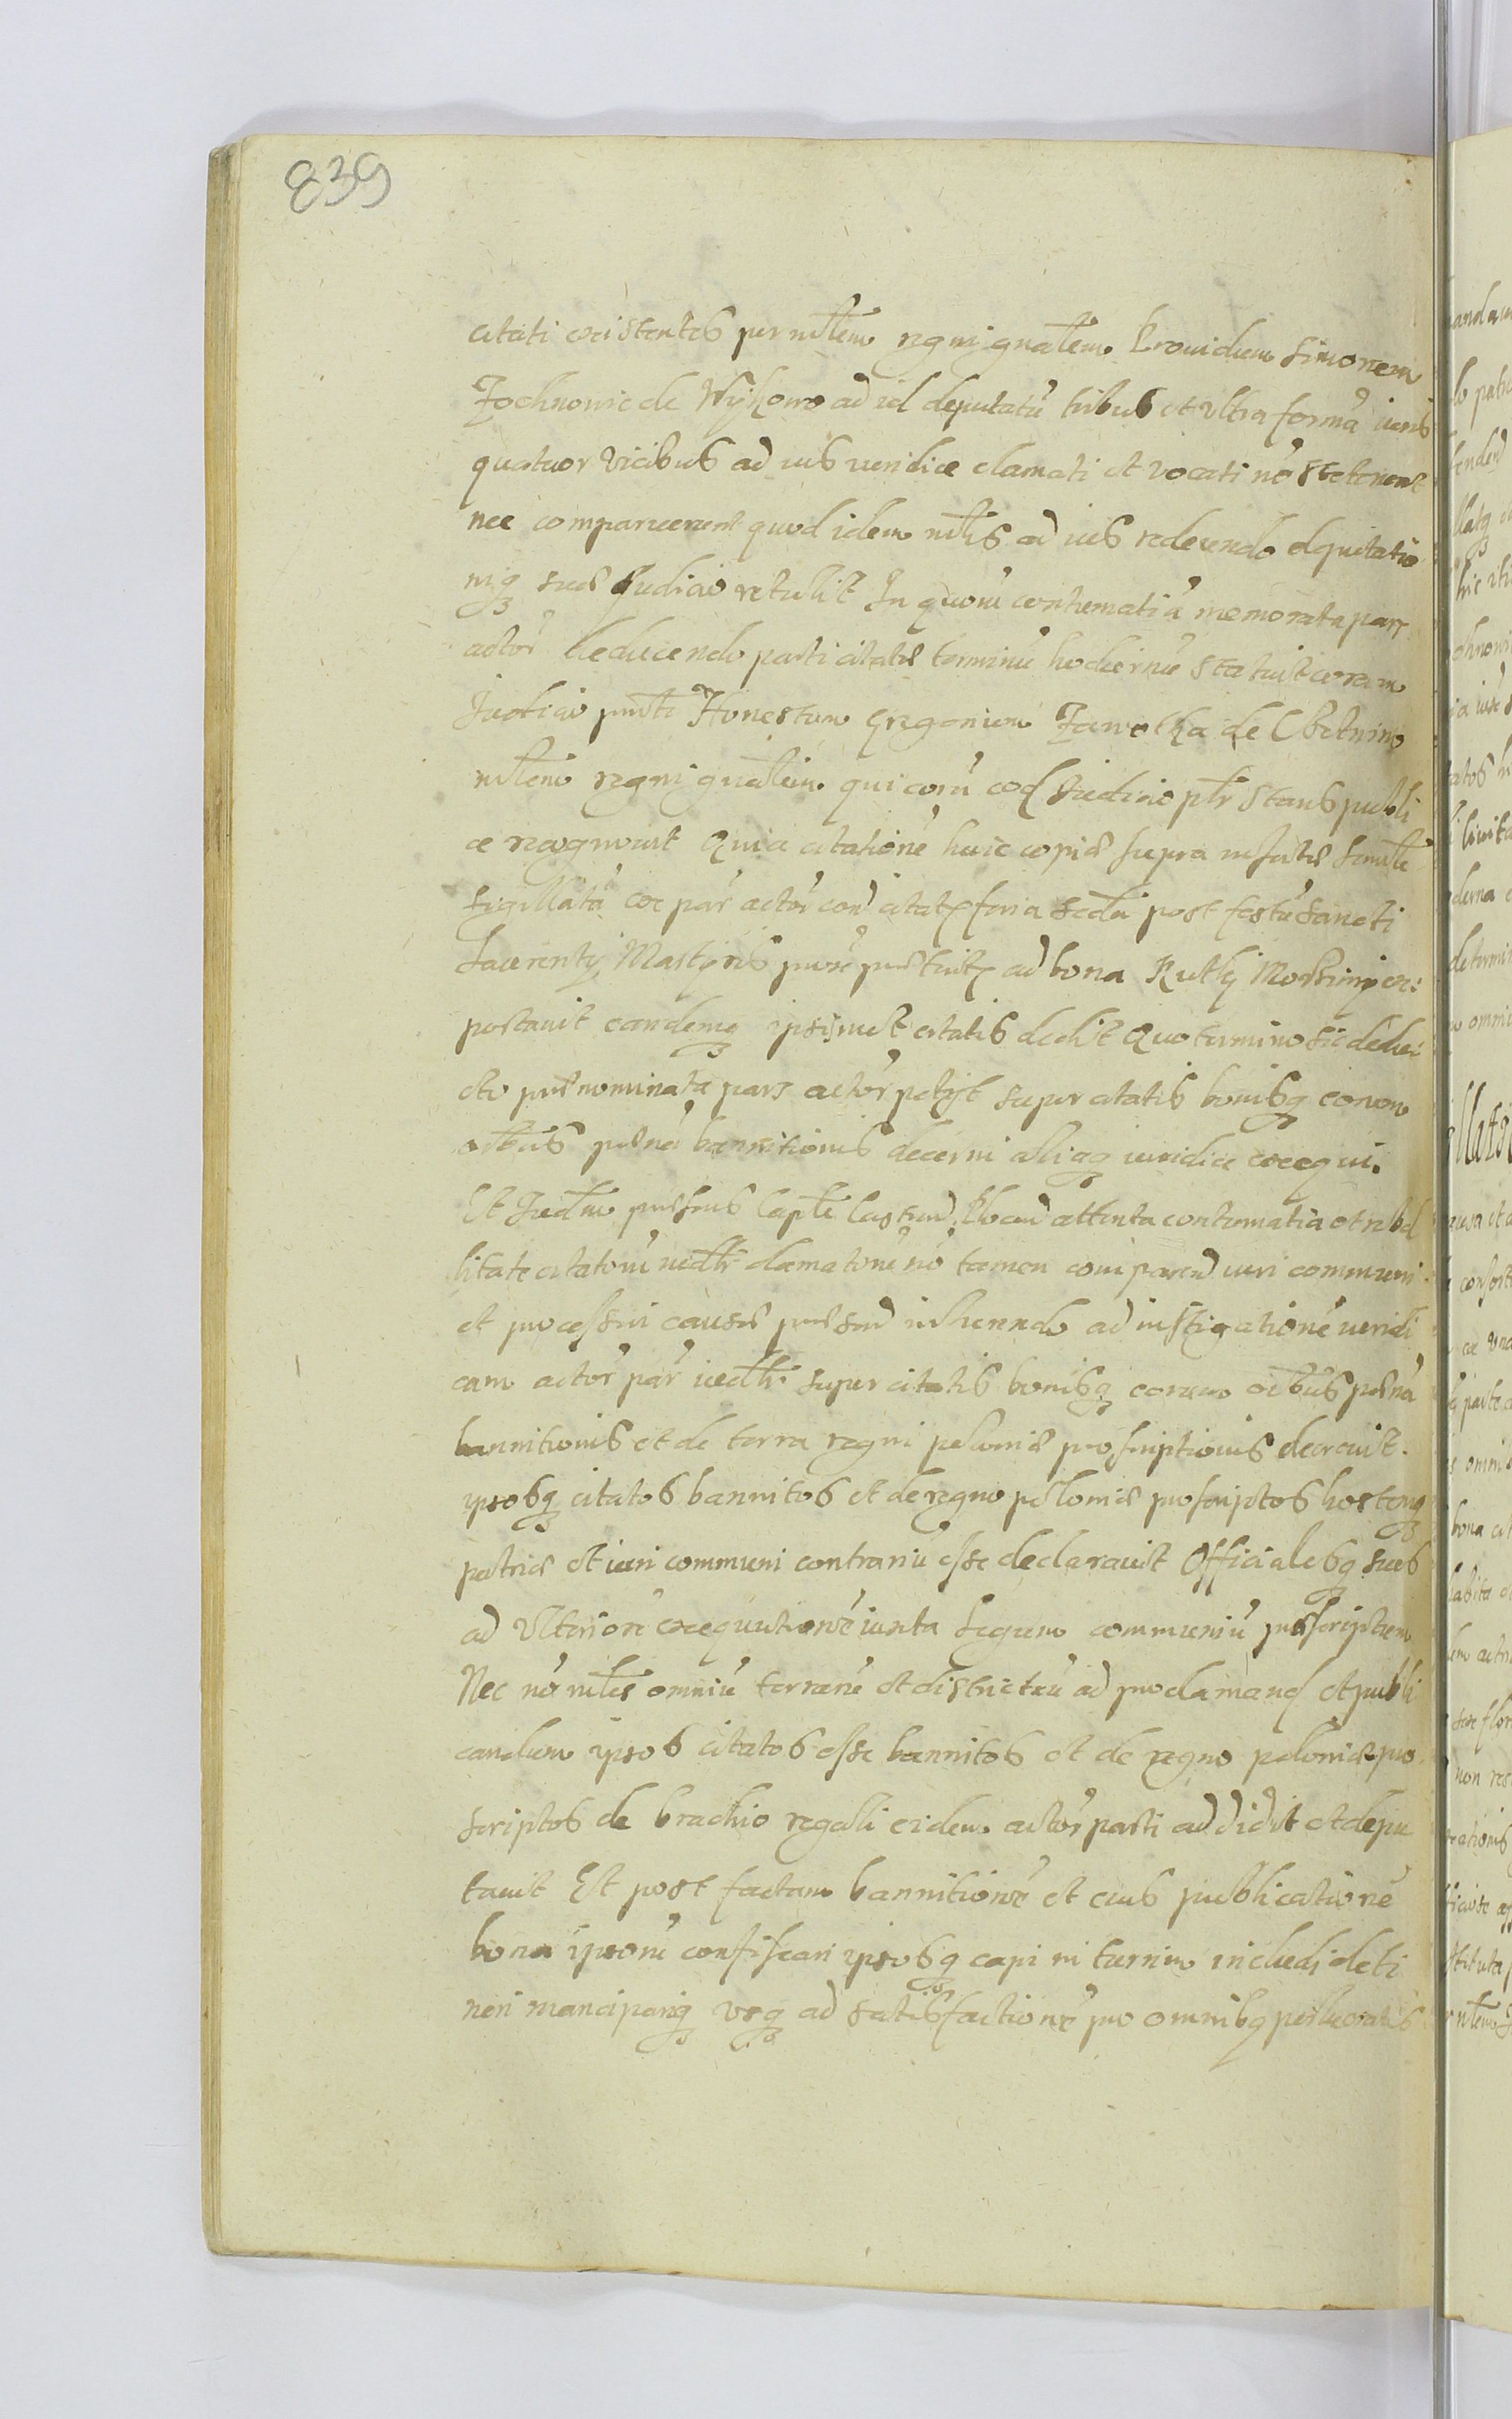 839
citati existentes per mlem regni gnalem Prouidum Simonem
Jochnowic de Wyhow ad id deputatu tribus et vltra forma iuris
quatuor vicibus ad ius iuridice clamati et vocati no steterunt
nec comparuerunt quod idem mlis ad ius redeundo
sue Judicio retulit In quoru contumatia memorata pars
actor deducendo parti citate terminu hodiernu statuit coram
Judicio pnti Honestum Gregorium de
mlem regni gnalem qui coru eod Judicio plr stans publi
ce recognouit Quia citatione huic copie supra inserte simile
sigillata ex par actor con citat feria scda post festu Sancti
Laurentij Martyris ad bona
portauit eandemq ipsismet citatis dedit Quo termino sic dedu
cto prenominata pars actor petijt super citatis bonisq eorum
oibus pena bannitionis decerni aliaq iuridice exequi.
Et Judm presens Capte attenta contumatia et rebel
litate citatoru iudlr clamatoru no tamen comparen iuri communi
et processui cause inherendo ad instigatione iuridi
cam actor par iudlr super citatis bonisq eorum oibus pena
bannitionis et de terra regni polonie proscriptionis decreuit.
ipsosq citatos bannitos et de regno polonie proscriptos hostemq
patrie et iuri communi contrariu esse declarauit Officialesq suos
ad vlteriore executione iuxta legum communiu prescriptum
Nec no mles omniu terraru et districtuu ad proclamand et publi
candum ipsos citatos esse bannitos et de regno polonie pro
scriptos de brachio regali eidem actor parti addidit et depu
tauit Et post factam bannitione et eius publicatione
bona ipsoru confiscari ipsosq capi in turrim includi deti
neri mancipariq vsq ad satisfactione pro omnibq